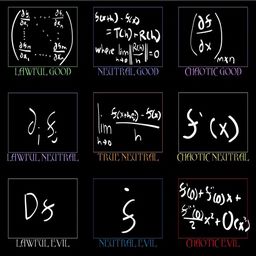 ∂f₁/∂x₁ ... ∂f₁/∂xₙ
⋮ ⋱ ⋮
∂fₘ/∂x₁ ... ∂fₘ/∂xₙ
LAWFUL GOOD
f(x+h)-f(x)
= T(h)+R(h)
where lim h→0 ||R(h)||/||h|| = 0
NEUTRAL GOOD
(∂f/∂x) m×n
CHAOTIC GOOD
∂ᵢfⱼ
LAWFUL NEUTRAL
lim h→0 (f(x+h)-f(x))/h
TRUE NEUTRAL
f'(x)
CHAOTIC NEUTRAL
Df
LAWFUL EVIL
ḟ
NEUTRAL EVIL
f(0)+f'(0)x+
f''(0)/2 x²+O(x³)
CHAOTIC EVIL